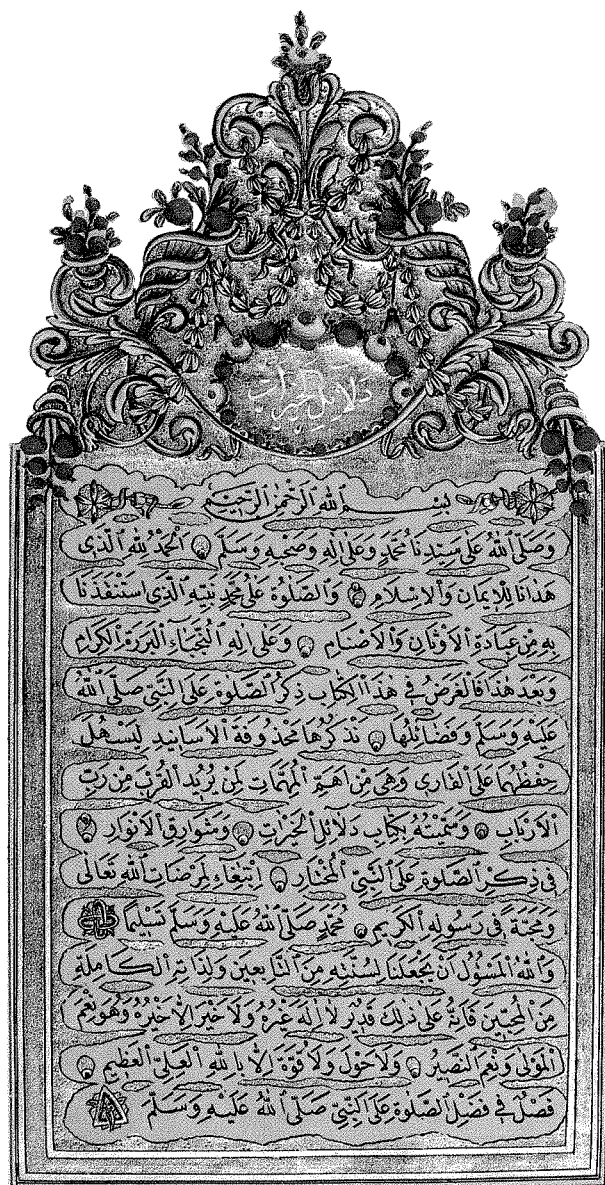 دلائل الخيرات
بسم الله الرحمن الرحيم
وَصَلَّى اللهُ عَلَى سَيِّدِنَا مُحَمَّدٍ وَعَلَى اٰلِهِ وَصَحْبِهِ وَسَلَّمَ اَلْحَمْدُ لِلّٰهِ الَّذِى
هَدَانَا لِلْاِيمَانِ وَالْاِسْلَامِ وَالصَّلٰوةُ عَلَى مُحَمَّدٍ نَبِيِّهِ الَّذِى اسْتَنْقَذَنَا
بِهِ مِنْ عِبَادَةِ الْاَوْثَانِ وَالْاَصْنَامِ وَعَلَى اٰلِهِ النُّجَبَاءِ الْبَرَرَةِ الْكِرَامِ
وَبَعْدَ هٰذَا فَالْغَرَضُ فِى هٰذَا الْكِتَابِ ذِكْرُ الصَّلٰوةِ عَلَى النَّبِيِّ صَلَّى اللهُ
عَلَيْهِ وَسَلَّمَ وَفَضَائِلُهَا نَذْكُرُهَا مَحْذُوفَةَ الْاَسَانِيدِ لِيَسْهُلَ
حِفْظُهَا عَلَى الْقَارِى وَهِىَ مِنْ اَهَمِّ الْمُهِمَّاتِ لِمَنْ يُرِيدُ الْقُرْبَ مِنْ رَبِّ
الْاَرْبَابِ وَسَمَّيْتُهُ بِكِتَابِ دَلَائِلِ الْخَيْرَاتِ وَشَوَارِقِ الْاَنْوَارِ
فِى ذِكْرِ الصَّلٰوةِ عَلَى النَّبِيِّ الْمُخْتَارِ اِبْتِغَاءً لِمَرْضَاتِ اللهِ تَعَالٰى
وَمَحَبَّةً فِى رَسُولِهِ الْكَرِيمِ مُحَمَّدٍ صَلَّى اللهُ عَلَيْهِ وَسَلَّمَ تَسْلِيمًا
وَاللهُ الْمَسْؤُلُ اَنْ يَجْعَلَنَا لِسُنَّتِهِ مِنَ التَّابِعِينَ وَلِذَاتِهِ الْكَامِلَةِ
مِنَ الْمُحِبِّينَ فَاِنَّهُ عَلَى ذٰلِكَ قَدِيرٌ لَا اِلٰهَ غَيْرُهُ وَلَا خَيْرَ اِلَّا خَيْرُهُ وَهُوَ نِعْمَ
الْمَوْلٰى وَنِعْمَ النَّصِيرُ وَلَا حَوْلَ وَلَا قُوَّةَ اِلَّا بِاللهِ الْعَلِىِّ الْعَظِيمِ
فَصْلٌ فِى فَضْلِ الصَّلٰوةِ عَلَى النَّبِيِّ صَلَّى اللهُ عَلَيْهِ وَسَلَّمَ